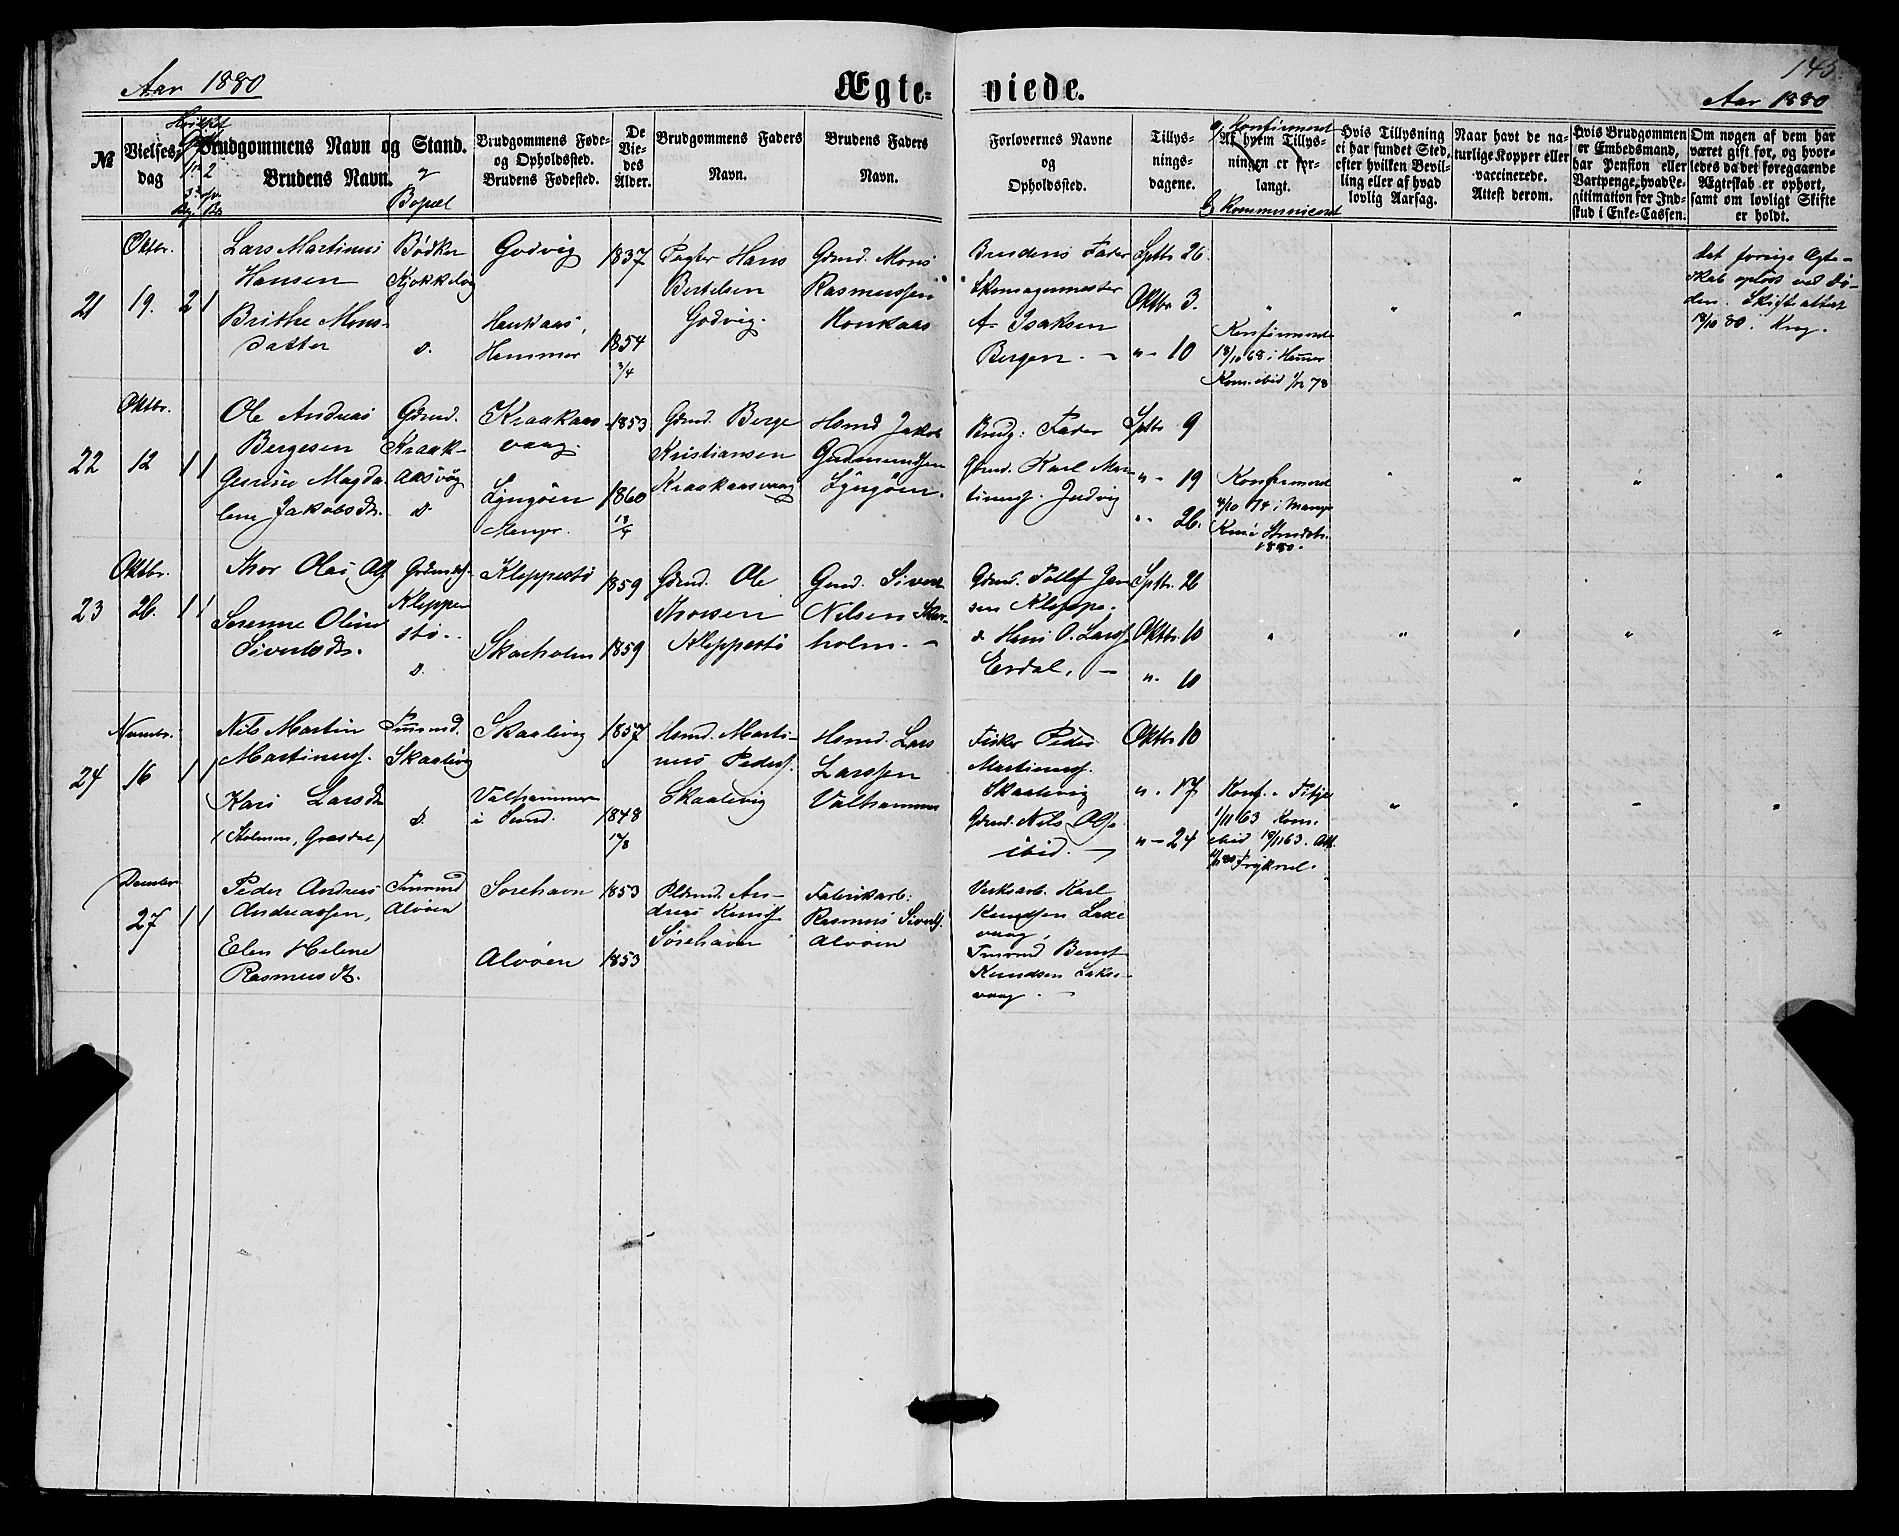 Aar 1880
Ægte-
viede.
145.
Aar 1880
№
Vielses-
dag
Brudgommens Navn og Stand.
Brudens Navn.
Bopæl
Brudgommens Føde-
og Opholdssted.
Brudens Fødested.
De
Vie-
des
Alder.
Brudgommens Faders
Navn.
Brudens Faders
Navn.
Forlovernes Navne
og
Opholdssted.
Tillys-
nings-
dagene.
a, Konfirmeret
Af hvem Tillys-
ningen er for-
langt.
b, Kommuniceret
Hvis Tillysning
ei har fundet Sted,
efter hvilken Bevil-
ling eller af hvad
lovlig Aarsag.
Naar havt de na-
turlige Kopper eller
vaccinerede.
Attest derom.
Hvis Brudgommen
er Embedsmand,
har Pension eller
Vartpenge, hvad Le-
gitimation for Ind-
skud i Enke-Cassen.
Om nogen af dem har
været gift før, og hvor-
ledes da det foregaaende
Ægteskab er ophørt,
samt om lovligt Skifte
er holdt.
21
Oktbr.
19.
2 1
Lars Martinus
Hansen
Brithe Mons-
datter
Bødker
d.
Godvig
Haukaas,
Hammer
1837
1854
3/4
Hans
Bertelsen
Godvig.
Gdmd. Mons
Rasmussen
Haukaas
Brudens Fader
Skomagermester
A. Isaksen
Bergen. -
Sptbr 26.
Oktbr 3.
" - 10
Konfirmeret
18/10 68 i Hamer
Kom. ibid 78
det forrige Ægte-
skab opløst ved Dø-
den. Skifteattest
18/10 80. Krag.
22
Oktbr.
12
1 1
Ole Andreas
Bergesen
Magda-
lene Jakobsdtr.
Gdmd.
Kraak-
aasvåg
d.
Kraakaas-
vaag.
Lyngøen
Manger.
1853
1860
13/4
Gdmd. Berge
Kristiansen
Kraakaasvaag
Hsmd Jakob
Gudmundsen
Lyngøen.
Brudg: Fader
Gdmd. Karl Mar-
tinuss. Judvig
Sptbr 9
" - 19
" - 26.
Konfirmeret
4/10 74 i Manger
1880.
23
Oktbr.
26.
1 1
Thor Olai
Serenne Oline
Sivertsdtr.
Kleppe-
stø.
d.
Kleppestø
Skarholm
1859
1859
Gdmd. Ole
Thorsen
Kleppestø
Gmd. Sivert
Nilsen Skar-
holm. -
Gdmd. Tollef Jan-
sen Kleppe.
& Hans O. Larss.
Erdal, -
Sptbr. 26
Oktbr. 10
" - 10
24
16
1 1
Nils Martin
Martinuss.
Kari Larsdtr
(Holmen, Græsdal)
Skaalvig
d.
Skaalevig
Valhammer
i Sund.
1857
1848
17/8
Hsmd. Marti-
nus Peders.
Skaalevig
Hsmd. Lars
Larssen
Valhammer
Fisker Peder
Martinuss.
Skaalevig
Gdmd. Nils Ols.
ibid. -
Oktbr 10
" - 17
" - 24
Konf. i Fitje
1/11 63 Kom.
ibid 18/11 63. Att.
27
1 1
Peder Andreas
Andreassen,
Elen Helene
Rasmusdtr.
Alvøen
Sørehavn
Alvøen
1853
1853
An-
dreas Knuds.
Sørehavn
Fabrikarb.
Rasmus Siverts.
Alvøen
Karl
Knudsen Laxe-
vaag,
Bernt
Knudsen Lakse-
vaag. -